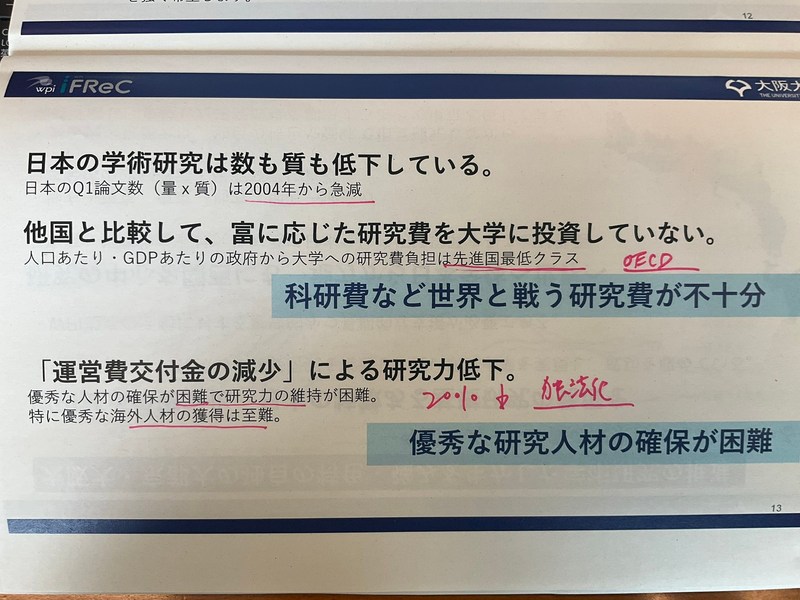 12
wpi iFReC
大阪大
THE UNIVERSIT
日本の学術研究は数も質も低下している。
日本のQ1論文数（量 x 質）は2004年から急減
他国と比較して、富に応じた研究費を大学に投資していない。
人口あたり・GDPあたりの政府から大学への研究費負担は先進国最低クラス OECD
科研費など世界と戦う研究費が不十分
「運営費交付金の減少」による研究力低下。
優秀な人材の確保が困難で研究力の維持が困難。 20% ↓
特に優秀な海外人材の獲得は至難。
優秀な研究人材の確保が困難
13